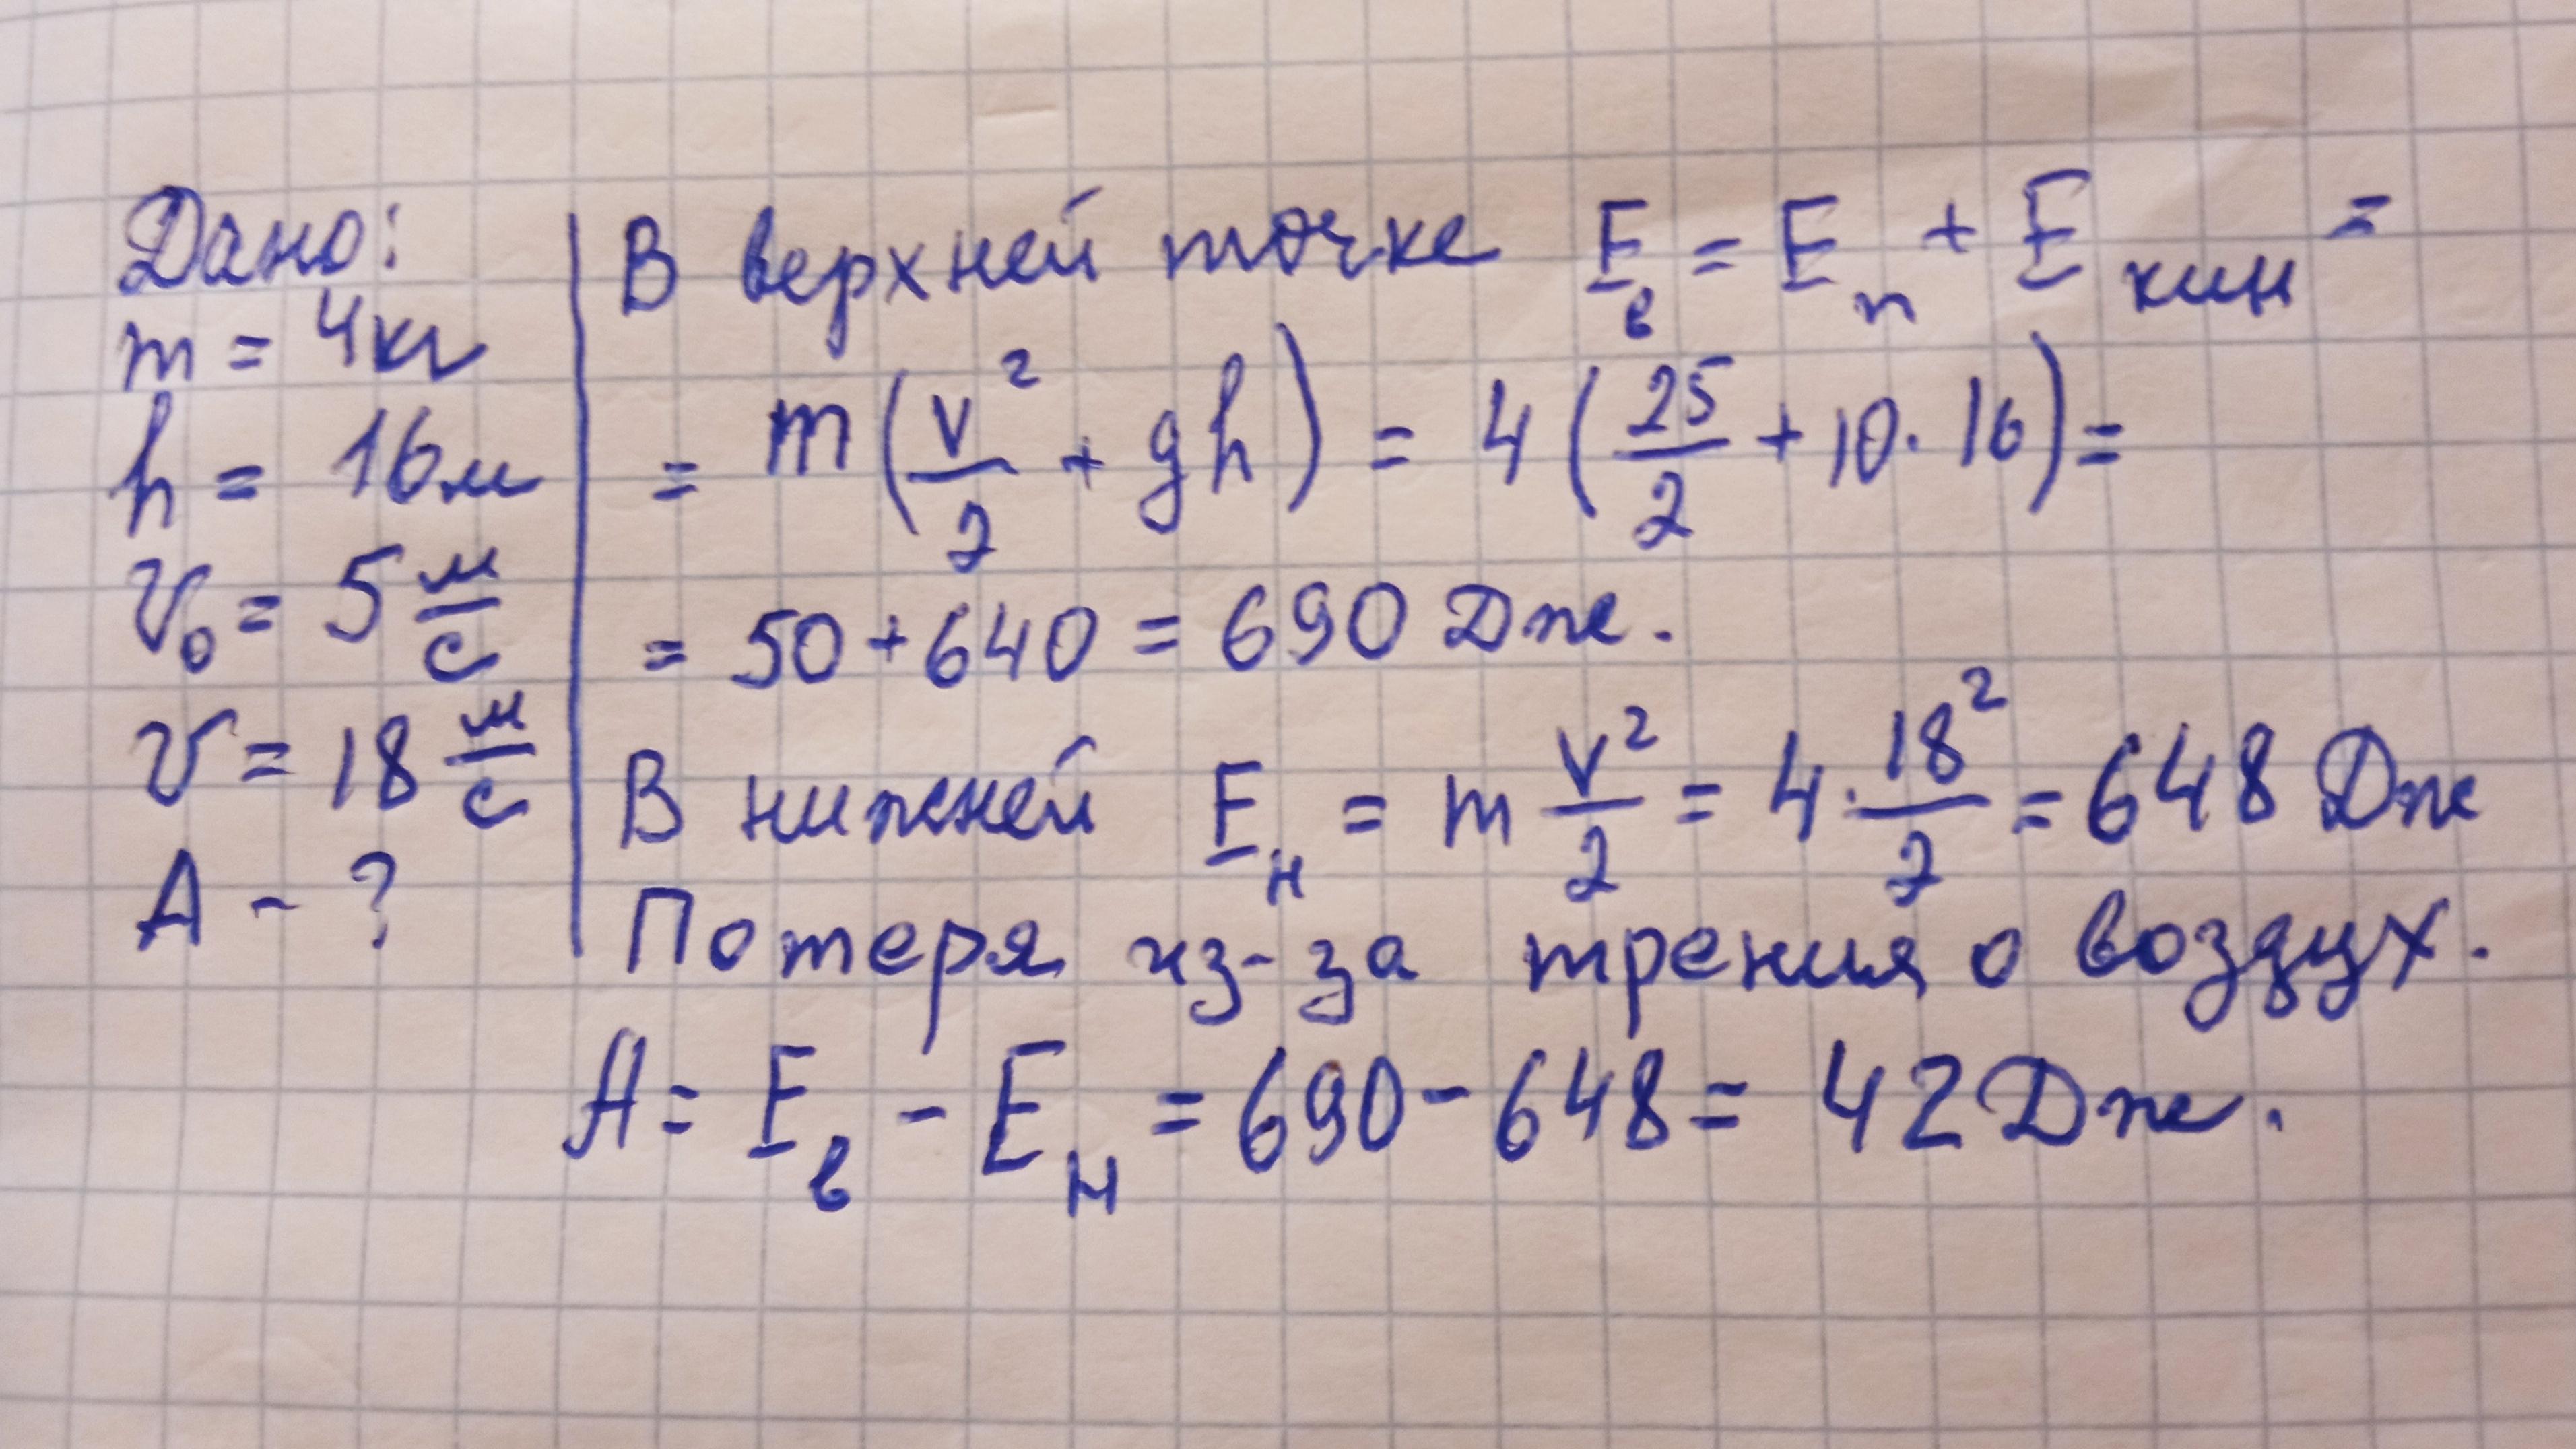 Дано:
m = 4 кг
h = 16 м
v₀ = 5 м/с
v = 18 м/с
A - ?
В верхней точке E_в = E_п + E_кин =
= m(v²/2 + gh) = 4(25/2 + 10·16) =
= 50 + 640 = 690 Дж.
В нижней E_н = m v²/2 = 4·18²/2 = 648 Дж
Потеря из-за трения о воздух.
A = E_в - E_н = 690 - 648 = 42 Дж.